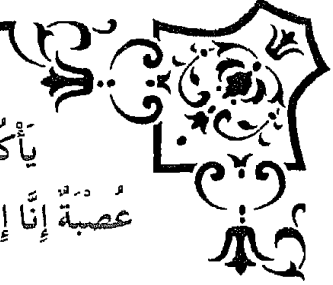 يَأْكُ
عُصْبَةٌ إِنَّا إِ